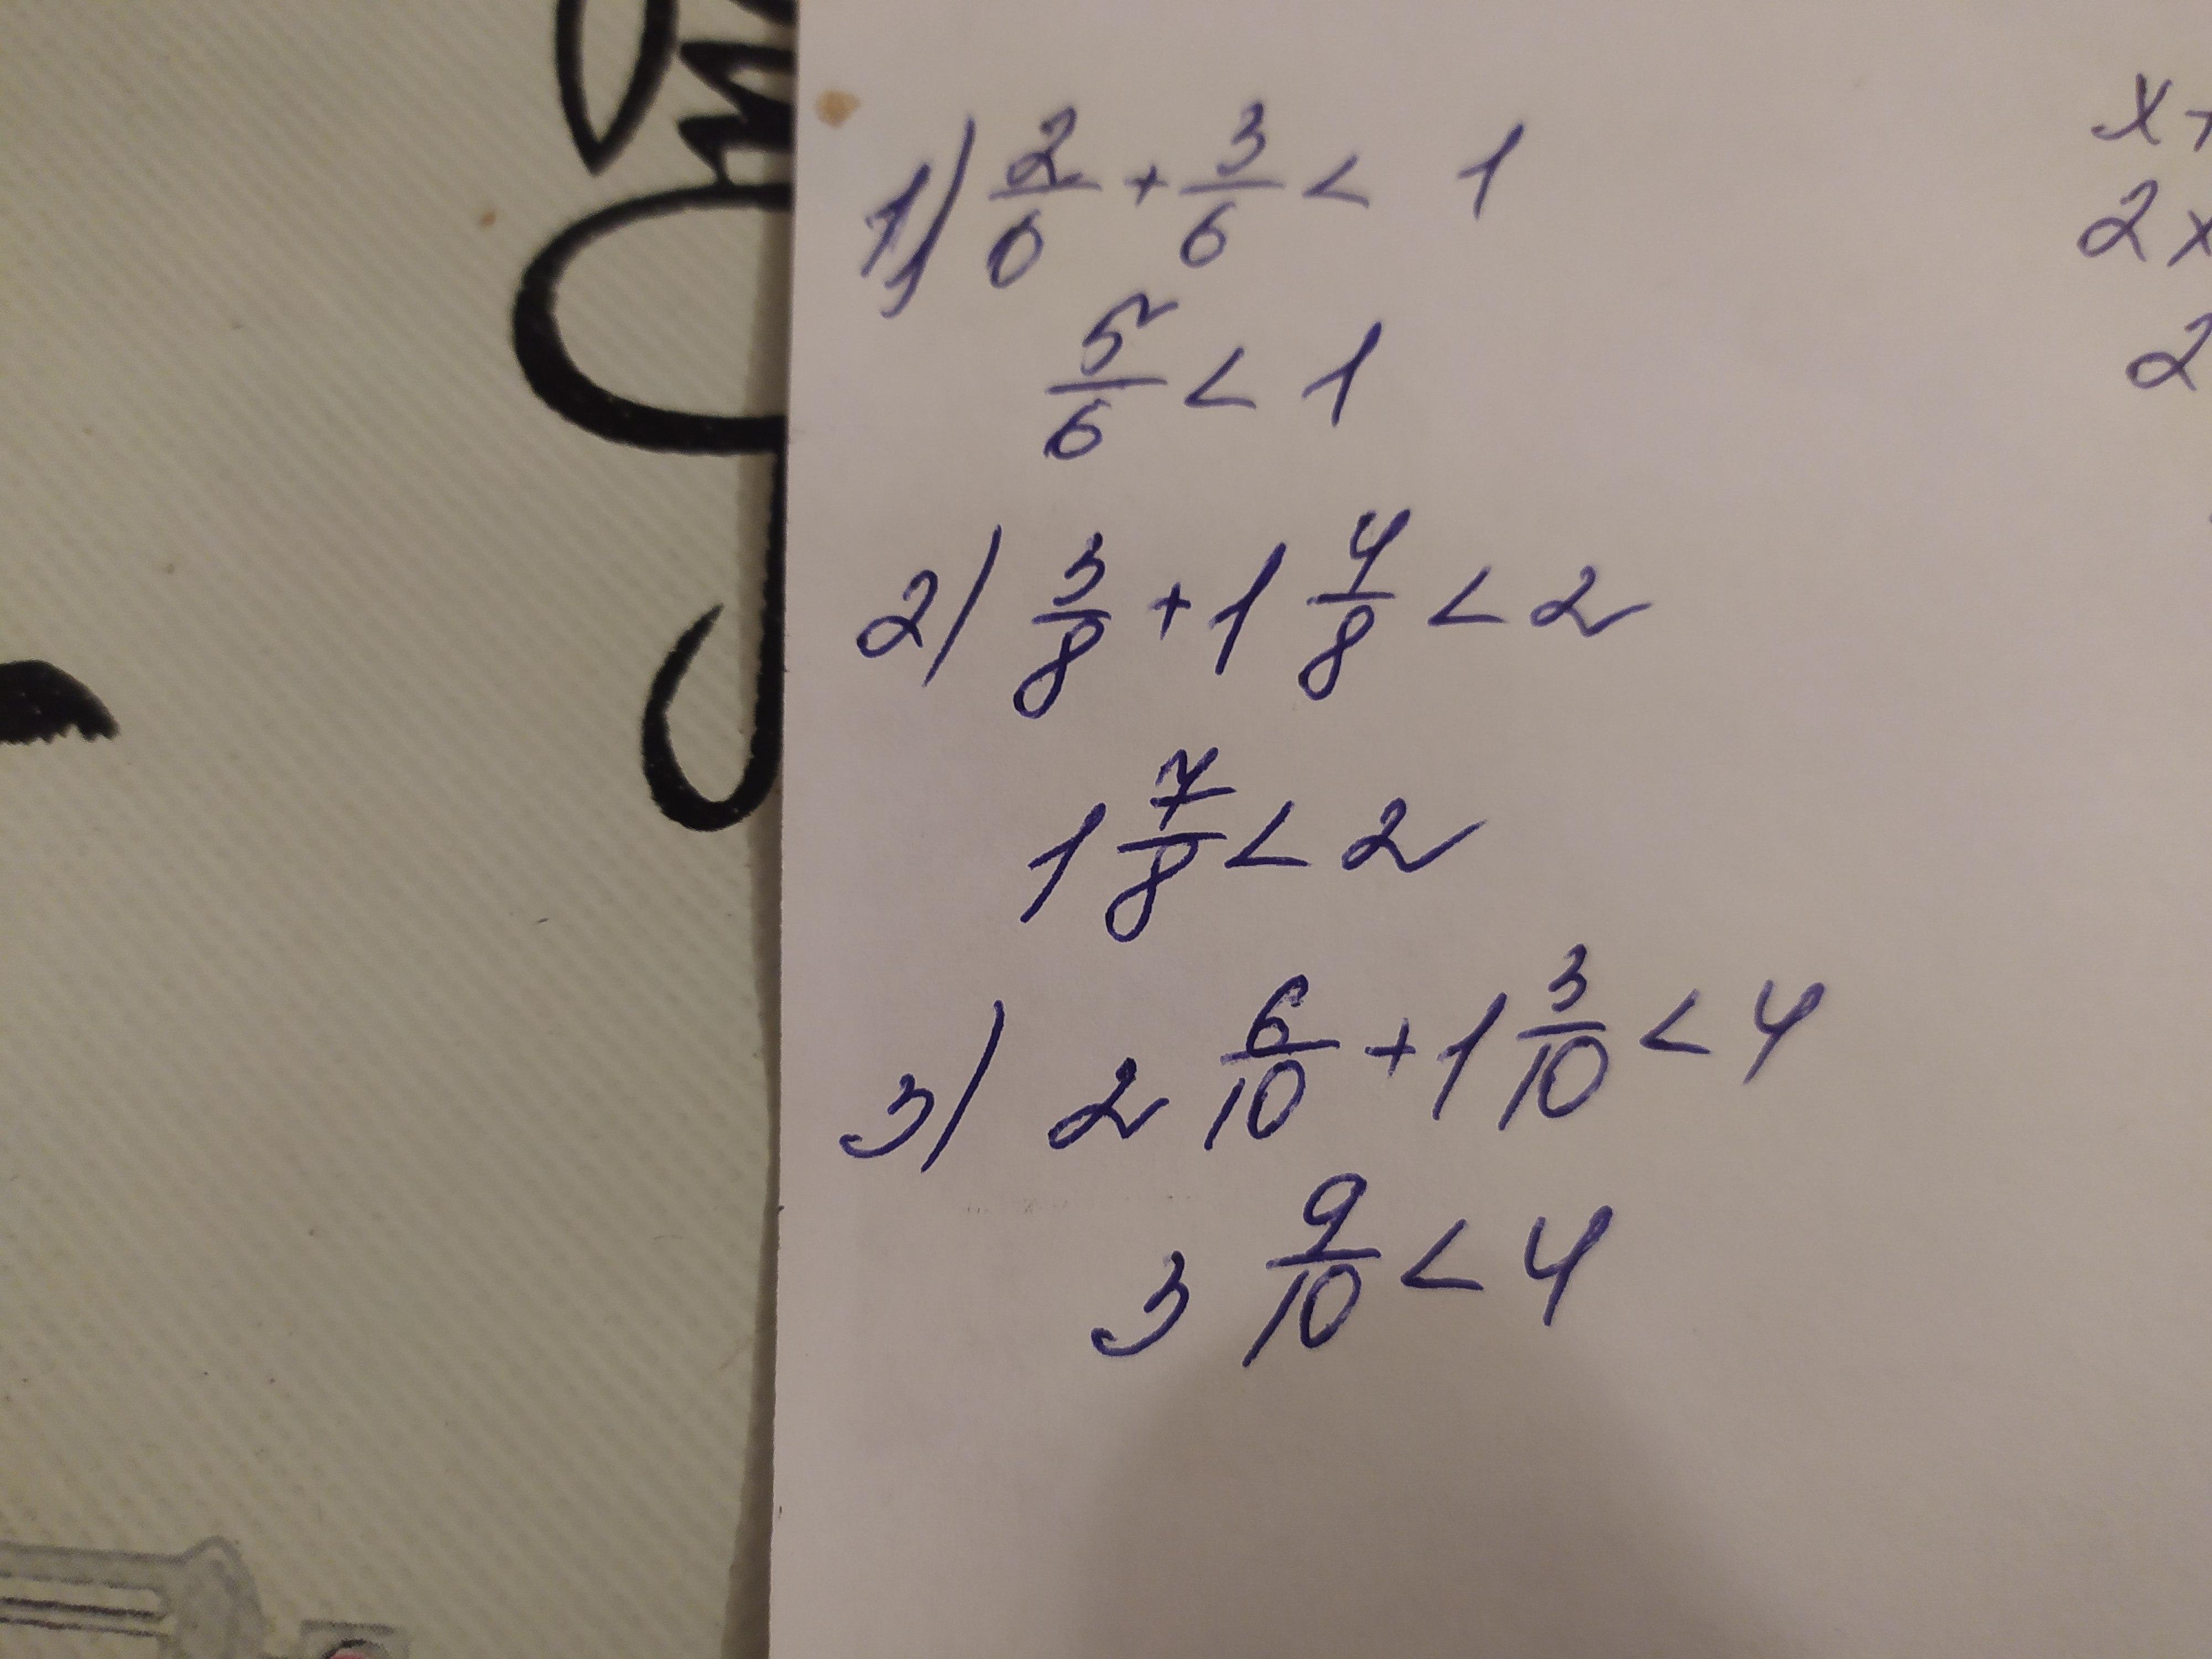 1) 2/6 + 3/6 < 1
5/6 < 1
2) 3/8 + 1 4/8 < 2
1 7/8 < 2
3) 2 6/10 + 1 3/10 < 4
3 9/10 < 4
x+
2x
2